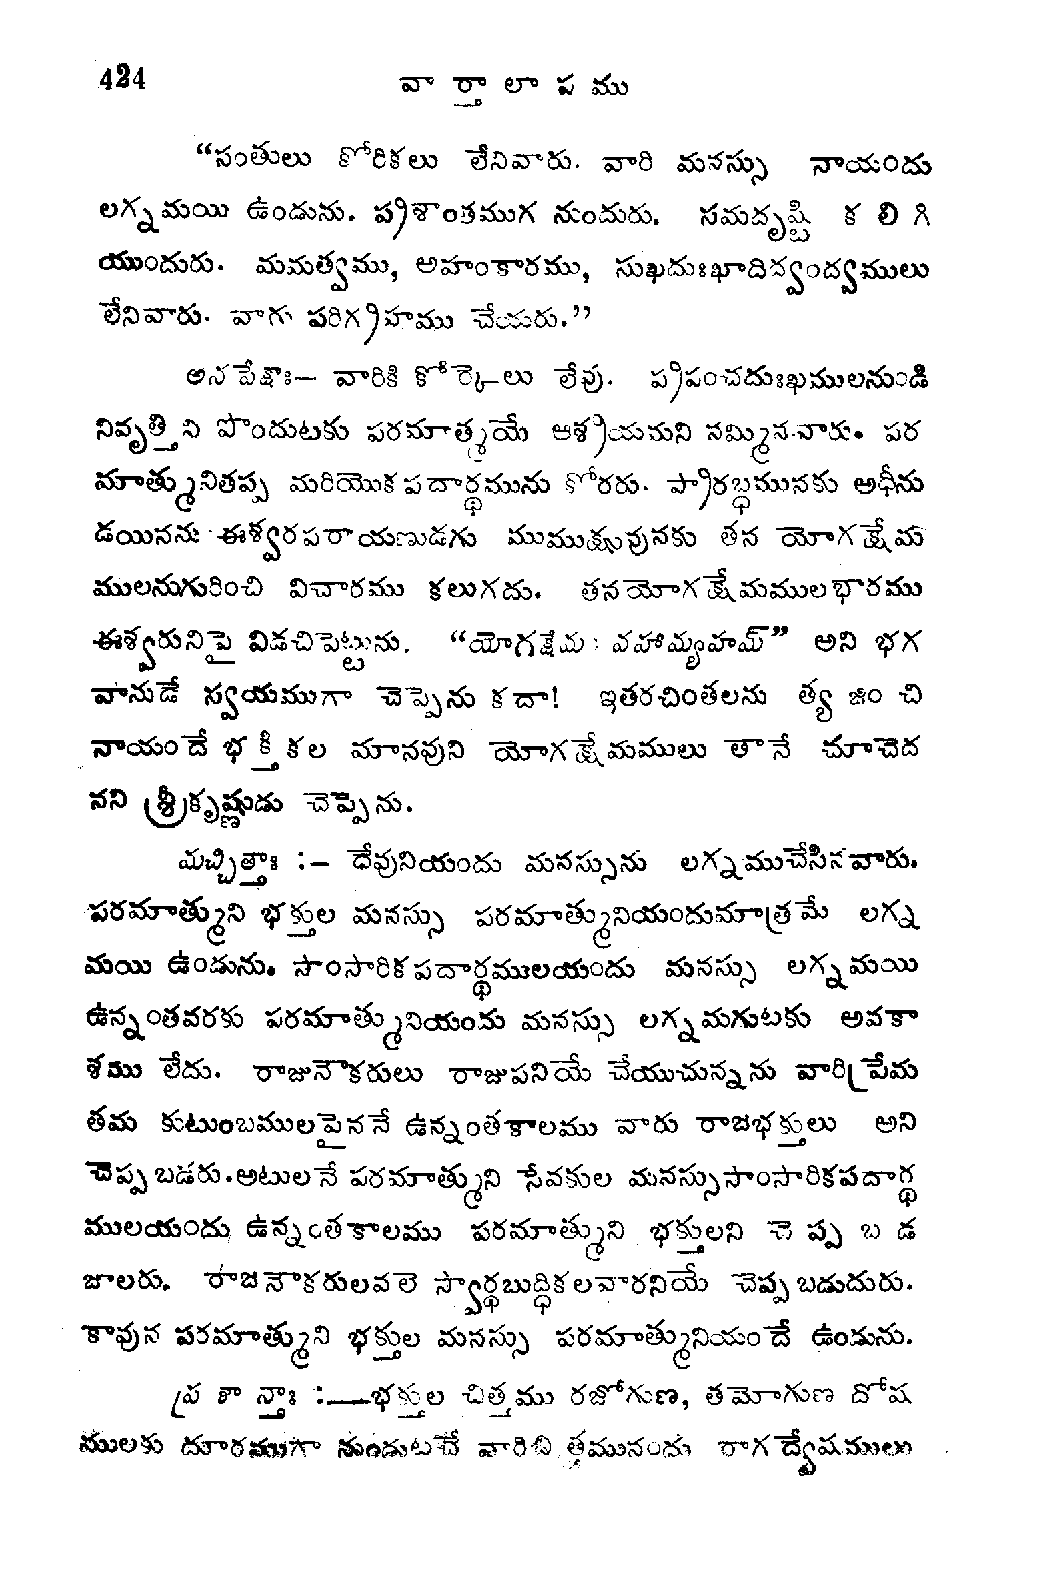 424
వార్తాలాపము
“సంతులు కోరికలు లేనివారు. వారి మనస్సు నాయందు
లగ్నమయి ఉండును. ప్రశాంతముగ నుందురు. సమదృష్టి కలిగి
యుందురు. మమత్వము, అహంకారము, సుఖదుఃఖాదిద్వంద్వములు
లేనివారు. వారు పరిగ్రహము చేయరు.”
అనపేక్షాః— వారికి కోర్కెలు లేవు. ప్రపంచదుఃఖములనుండి
నివృత్తిని పొందుటకు పరమాత్మయే ఆశ్రయమని నమ్మినవారు. పర
మాత్మునితప్ప మరియొకపదార్థమును కోరరు. ప్రారబ్ధమునకు అధీను
డయినను ఈశ్వరపరాయణుడగు ముముక్షువునకు తన యోగక్షేమ
ములనుగురించి విచారము కలుగదు. తనయోగక్షేమములభారము
ఈశ్వరునిపై విడచిపెట్టును. “యోగక్షేమం వహామ్యహమ్” అని భగ
వానుడే స్వయముగా చెప్పెను కదా! ఇతరచింతలను త్యజించి
నాయందే భక్తికల మానవుని యోగక్షేమములు తానే చూచెద
నని శ్రీకృష్ణుడు చెప్పెను.
మచ్చిత్తాః :— దేవునియందు మనస్సును లగ్నముచేసినవారు.
పరమాత్ముని భక్తుల మనస్సు పరమాత్మునియందుమాత్రమే లగ్న
మయి ఉండును. సాంసారికపదార్థములయందు మనస్సు లగ్నమయి
ఉన్నంతవరకు పరమాత్మునియందు మనస్సు లగ్నమగుటకు అవకా
శము లేదు. రాజునౌకరులు రాజుపనియే చేయుచున్నను వారిప్రేమ
తమ కుటుంబములపైననే ఉన్నంతకాలము వారు రాజభక్తులు అని
చెప్పబడరు. అటులనే పరమాత్ముని సేవకుల మనస్సుసాంసారికపదార్థ
ములయందు ఉన్నంతకాలము పరమాత్ముని భక్తులని చెప్పబడ
జాలరు. రాజనౌకరులవలె స్వార్థబుద్ధికలవారనియే చెప్పబడుదురు.
కావున పరమాత్ముని భక్తుల మనస్సు పరమాత్మునియందే ఉండును.
ప్రశాన్తాః :—భక్తుల చిత్తము రజోగుణ, తమోగుణ దోష
ములకు దూరముగా నుండుటచే వారిచిత్తమునందు రాగద్వేషములు